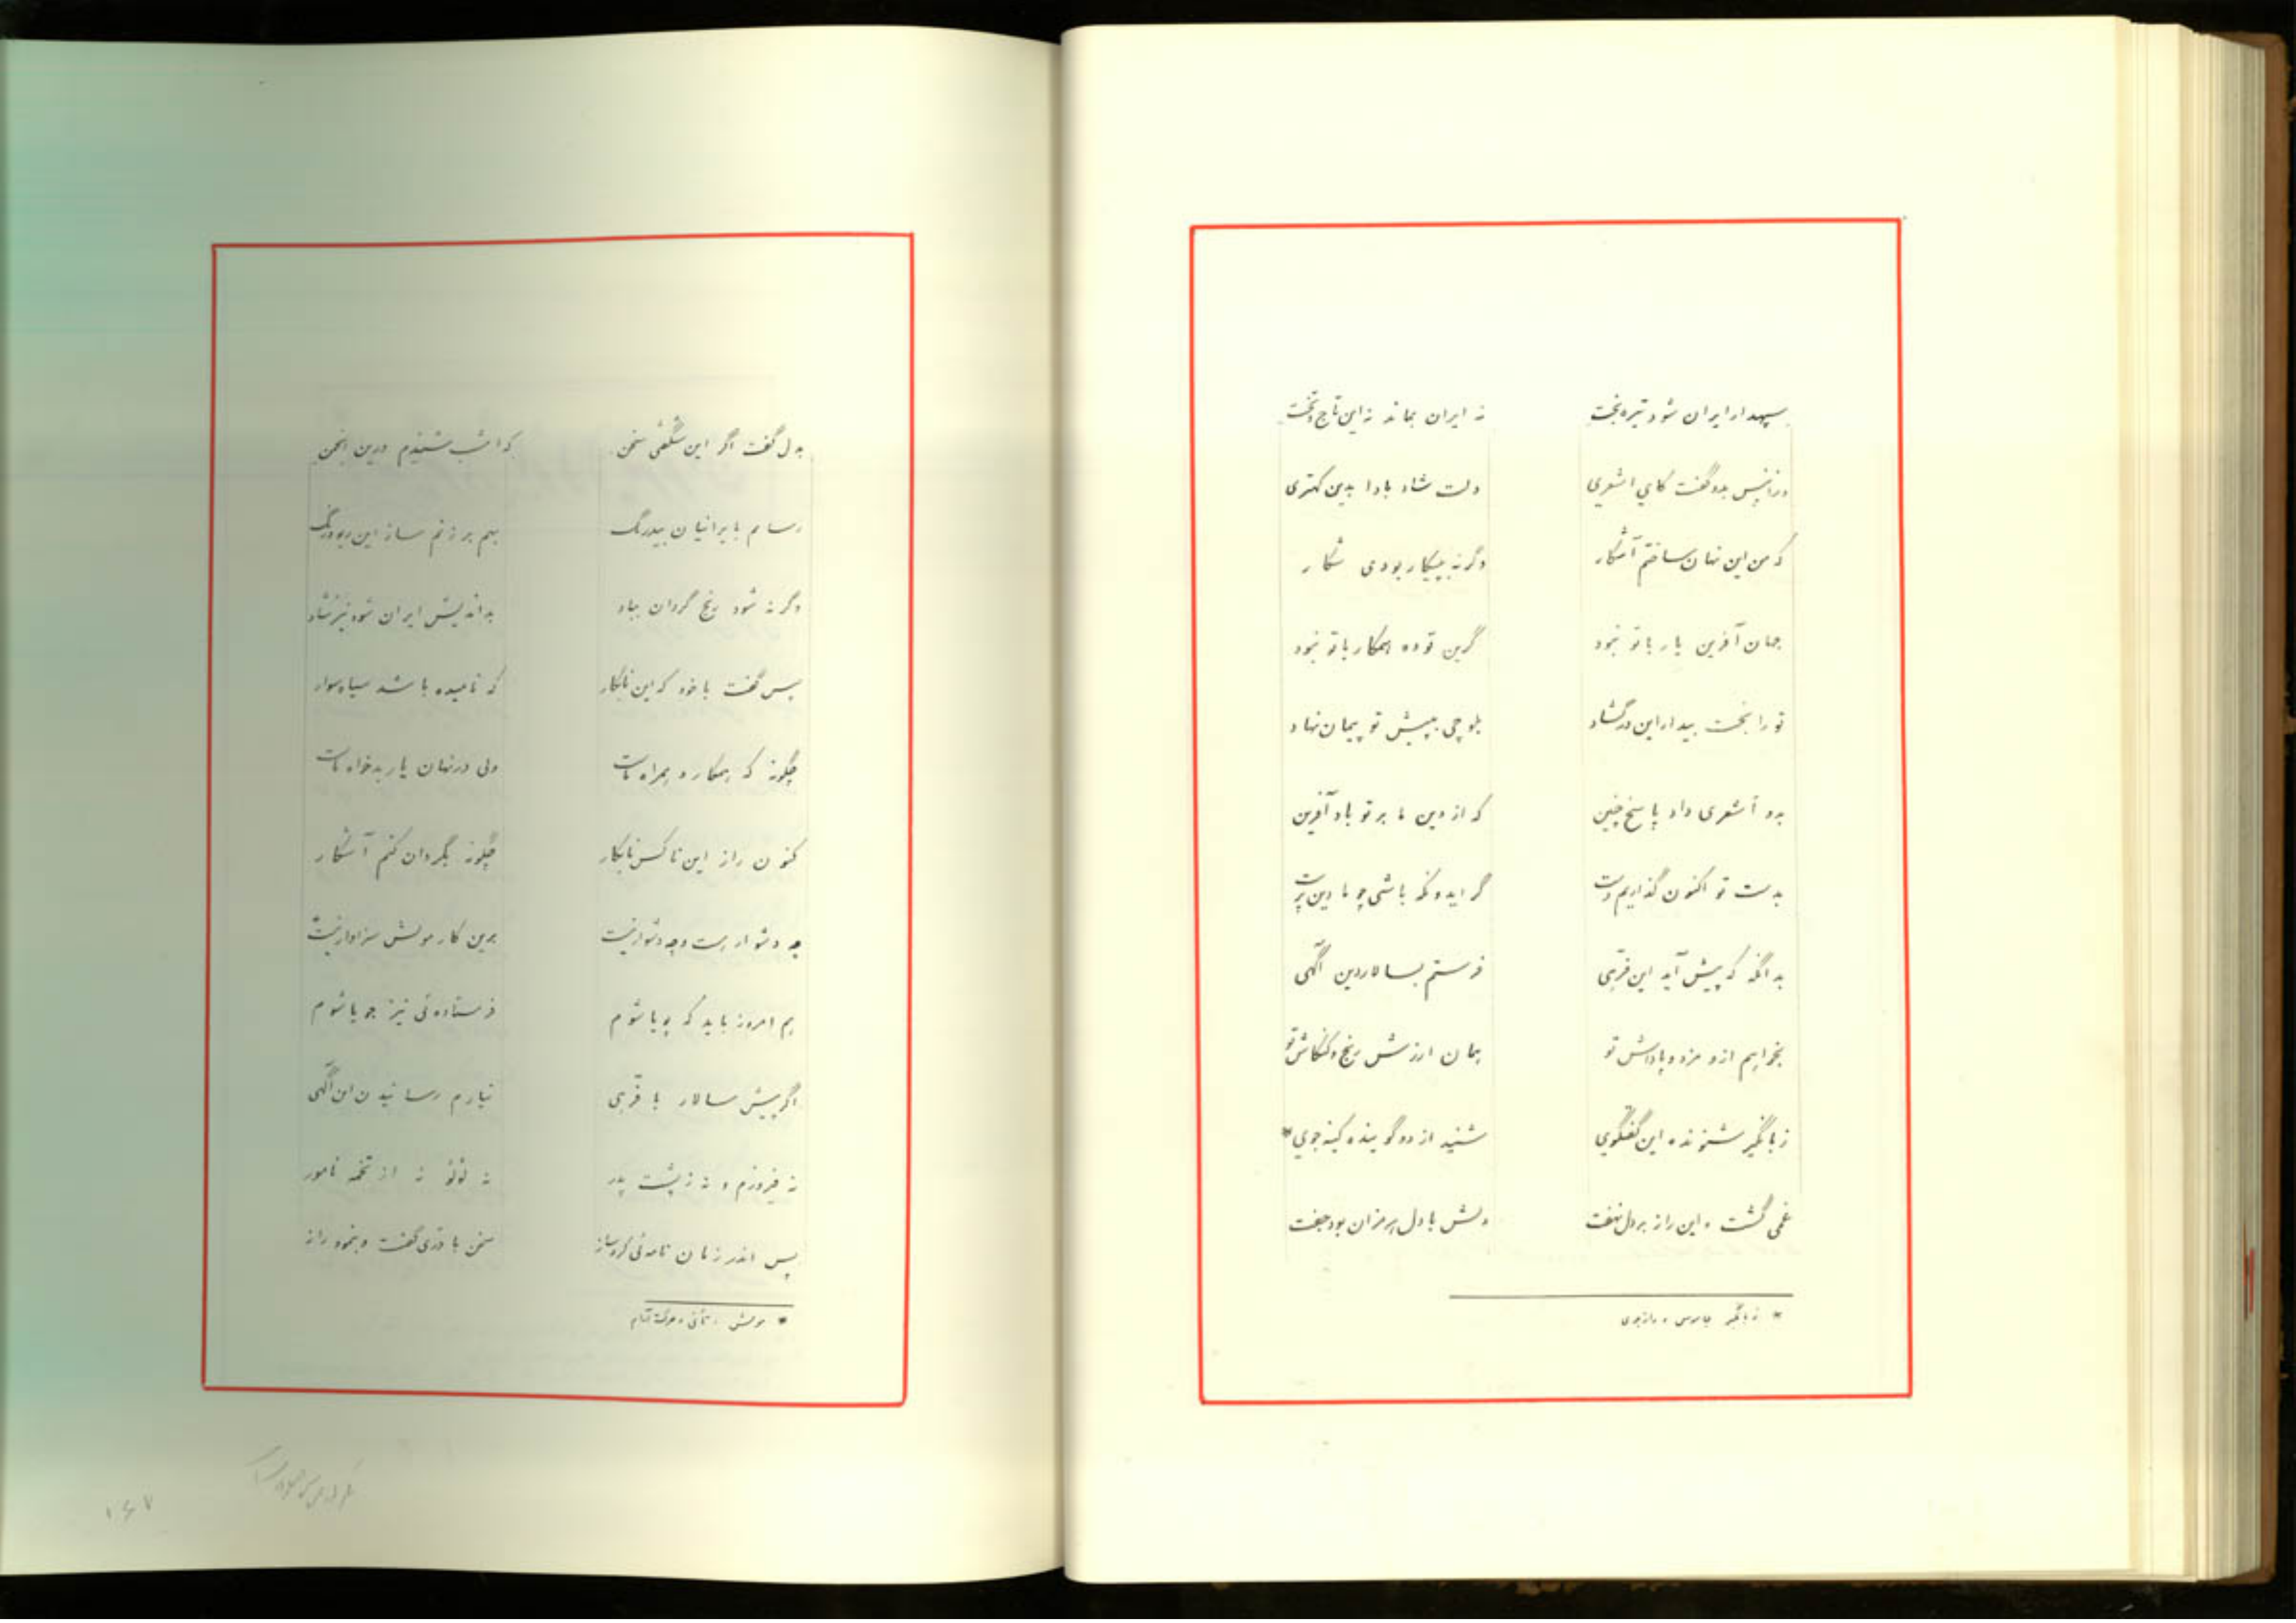 سپهدار ایران شود تیره بخت نه ایران بماند نه این تاج و تخت
وزانپس بدو گفت کای اشعری دلت شاد بادا بدین کهتری
که من این نهان ساختم آشکار وگرنه به پیکار بودی شکار
جهان آفرین یار با تو نبود گرین توده همکار با تو نبود
تو را بخت بیدار این در گشاد بلوچی به پیش تو پیمان نهاد
بدو اشعری داد پاسخ چنین که از دین ما بر تو باد آفرین
بدست تو اکنون گذاریم دست گر ایدونکه باشی چو ما دین پرست
بدانگه که پیش آید این فرهی فرستم بسالار دین آگهی
بخواهیم ازو مزد و پاداش تو بمان ارزش رنج و کنکاش تو
زبانگیر شنونده این گفتگوی شنید از دو گوینده کینه جوی*
غمی گشت و این راز بر دل نهفت دلش با دل هرمزان بود جفت
* زبانگیر جاسوس و رازجوی
بدل گفت اگر این شگفتی سخن که امشب شنیدم درین انجمن
رسانم بایرانیان بیدرنگ بهم بر زنم ساز این ریو و رنگ
وگرنه شود رنج گردان بباد بداندیش ایران شود نیز شاد
پس گفت با خود که این نابکار که نامیده باشد سیاه سوار
چگونه که همکار و همراه ماست ولی در نهان یار بدخواه ماست
کنون راز این ناکس نابکار چگونه بگردان کنم آشکار
چه دشوار هست و چه دشوار نیست برین کار مولش سزاوار نیست
هم امروز باید که پویا شوم فرستاده ئی نیز جویا شوم
اگر پیش سالار با فرهی نیارم رسانیدن این آگهی
نه فیروزم و نه ز پشت پدر نه لؤلؤ نه از تخمه نامور
پس اندر زمان نامه ئی کرد ساز سخن با دری گفت و بنمود راز
* مولش
۱۶۷